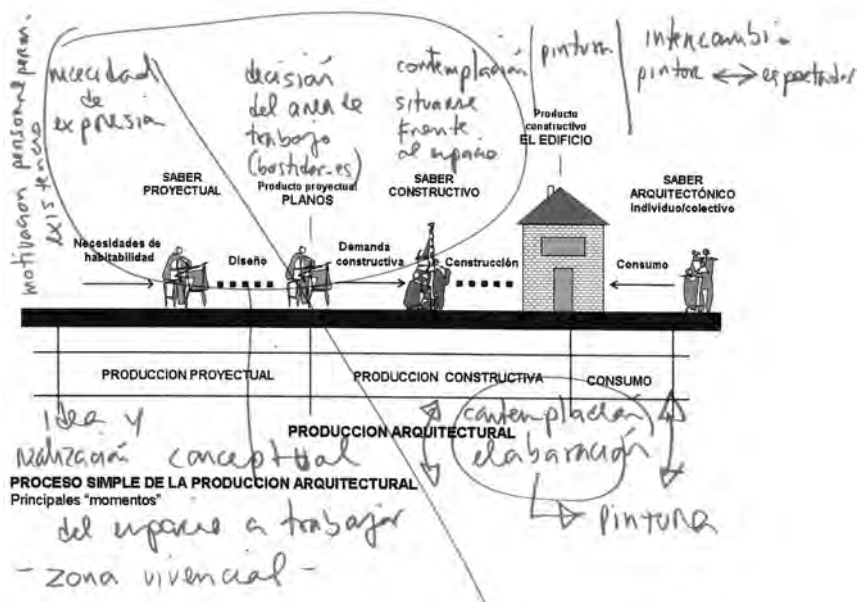 motivación personal perm.
existencia
necesidad
de
expresión
decisión
del area de
trabajo
(bastidor-es)
contemplación
situarse
frente
al espacio
pintura
intercambio
pintor ↔ espectador
SABER
PROYECTUAL
Producto proyectual
PLANOS
SABER
CONSTRUCTIVO
Producto
constructivo
EL EDIFICIO
SABER
ARQUITECTÓNICO
individuo/colectivo
Necesidades de
habitabilidad
Diseño
Demanda
constructiva
Construcción
Consumo
PRODUCCION PROYECTUAL
PRODUCCION CONSTRUCTIVA
CONSUMO
PRODUCCION ARQUITECTURAL
idea y
realización conceptual
contemplación
elaboración
pintura
PROCESO SIMPLE DE LA PRODUCCION ARQUITECTURAL
Principales "momentos"
del espacio a trabajar
- zona vivencial -